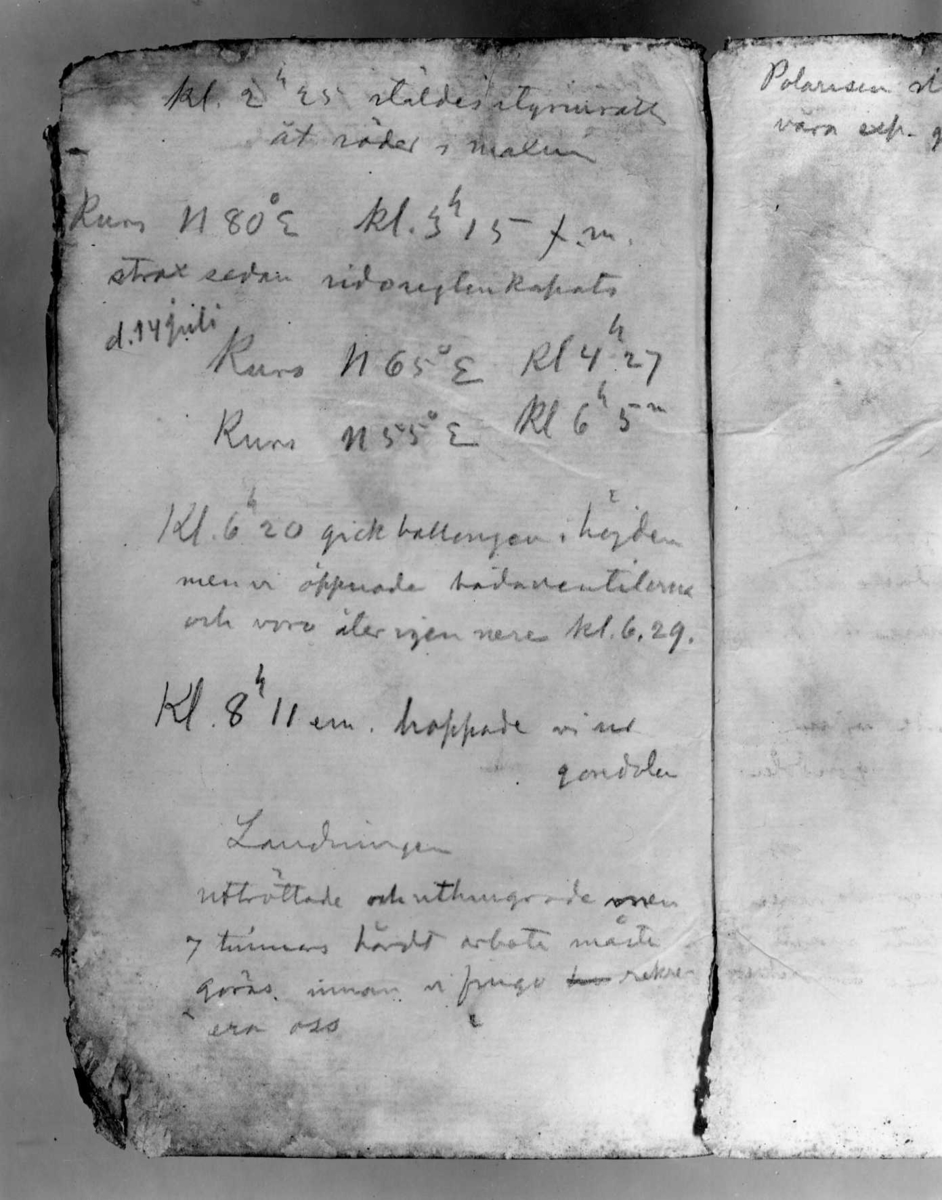 kl. 2h 25 stäldes styrinrätt
åt söder i malin
Kurs N 80° E kl. 3h 15 f.m.
strax sedan sidoseglen kapats
d. 14 juli
Kurs N 65° E Kl 4h 27
Kurs N 55° E Kl 6h 5m
Kl. 6h 20 gick ballongen i höjden
men vi öppnade båda ventilerna
och voro åter igen nere kl. 6.29.
Kl. 8h 11 em. hoppade vi ur
gondolen
Landningen
uttröttade och uthungrade men
7 timmars hårdt arbete måste
göras innan vi fingo rekre-
era oss
Polarisen
våra exp.